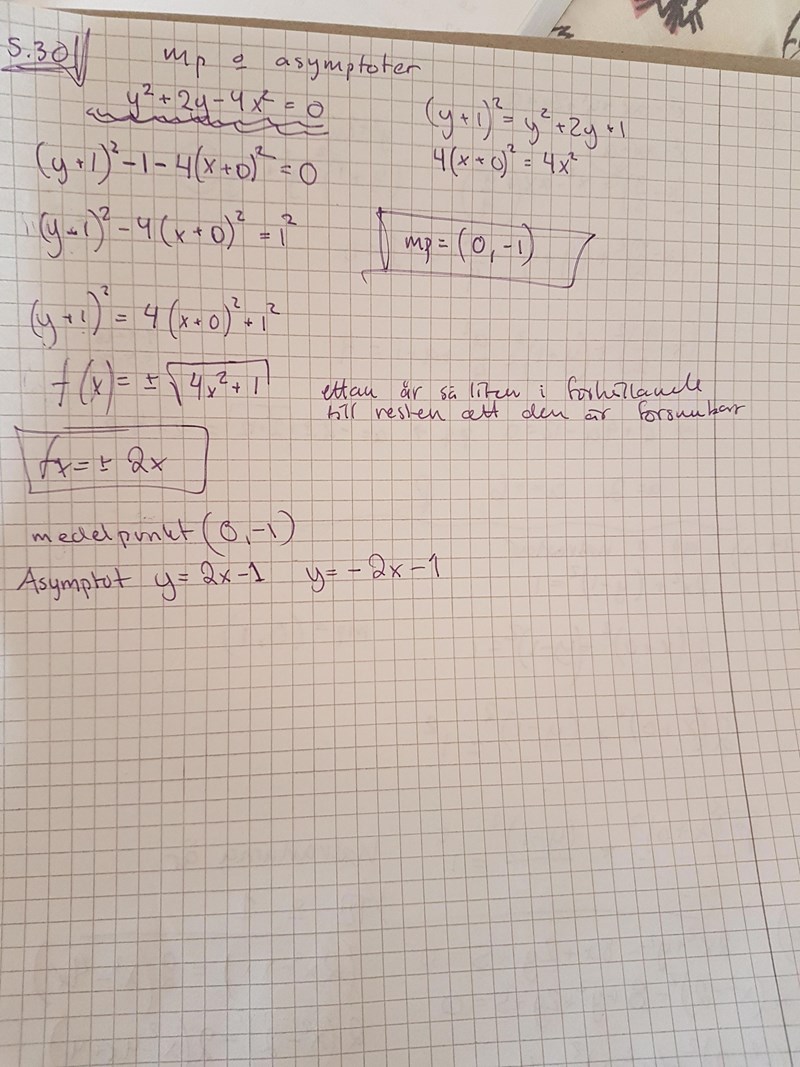 5.30
mp o asymptoter
y² + 2y - 4x² = 0
(y+1)² = y² + 2y + 1
4(x+0)² = 4x²
(y+1)² - 1 - 4(x+0)² = 0
(y+1)² - 4(x+0)² = 1²
mp = (0, -1)
(y+1)² = 4(x+0)² + 1²
f(x) = ± √4x² + 1
ettan är så liten i förhållande
till resten att den är försumbar
fx = ± 2x
medelpunkt (0, -1)
Asymptot y = 2x - 1 y = - 2x - 1